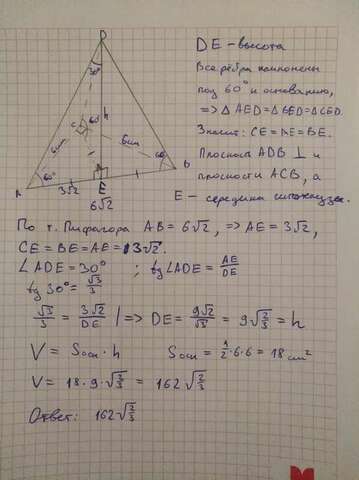 D
30°
C
60°
h
6см
6см
60°
60°
A
3√2
E
B
6√2
DE - высота
Все рёбра наклонены
под 60° к основанию,
=> △AED = △BED = △CED.
Значит: CE = AE = BE.
Плоскость ADB ⊥
плоскости ACB, а
E - середина гипотенузы.
По т. Пифагора AB = 6√2, => AE = 3√2,
CE = BE = AE = 3√2.
∠ADE = 30° ; tg∠ADE = AE/DE
tg 30° = √3/3
√3/3 = 3√2/DE |=> DE = 9√2/√3 = 9√(2/3) = h
V = Sосн · h Sосн = 1/2 · 6 · 6 = 18 см²
V = 18 · 9√(2/3) = 162√(2/3)
Ответ: 162√(2/3)